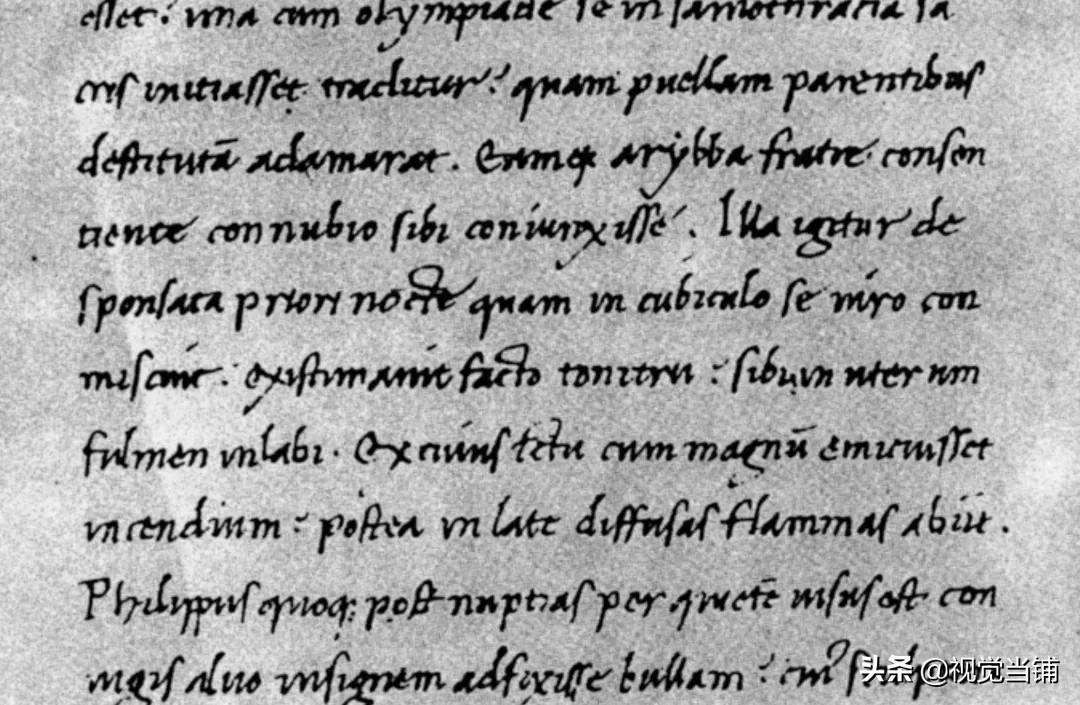 esset: una cum olympiade se in samothracia sa
cris initiasset traditur: quam puellam parentibus
destitutā adamarat. Eamq; arybba fratre consen
tiente connubio sibi coniunxisse. Illa igitur de
sponsata priori nocte quam in cubiculo se uiro con
misceric: existimauit facto tonitru: sibi in uterum
fulmen inlabi. Ex cuius ictu cum magnū emicuisset
incendium: postea in late diffusas flammas abiit.
Philippus quoq; post nuptias per quietē uisus est con
iugis aluo insignem adfixisse bullam: cui᾿
头条 @视觉当铺